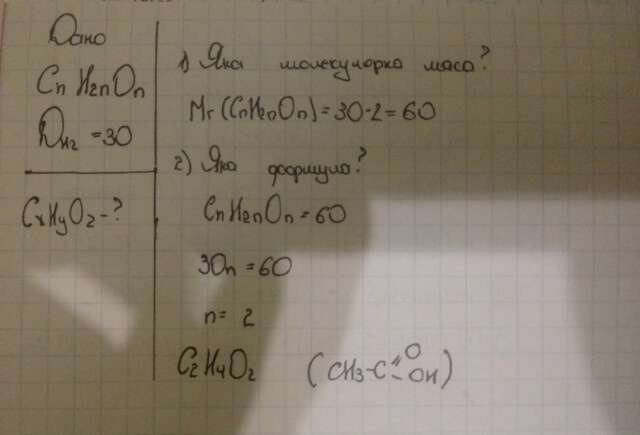 Дано
CnH2nOn
DH2 = 30
CxHyO2 - ?
1) Яка молекулярка маса?
Mr(CnH2nOn) = 30·2 = 60
2) Яка формула?
CnH2nOn = 60
30n = 60
n = 2
C2H4O2 (CH3-C=O-OH)